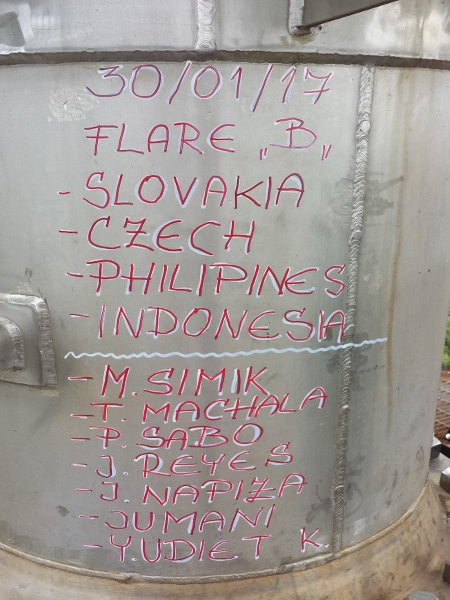 30/01/17
FLARE „B„
- SLOVAKIA
- CZECH
- PHILIPINES
- INDONESIA
- M. SIMIK
- T. MACHALA
- P. SABO
- J. REYES
- J. NAPIZA
- JUMANI
- Y.UDIET K.